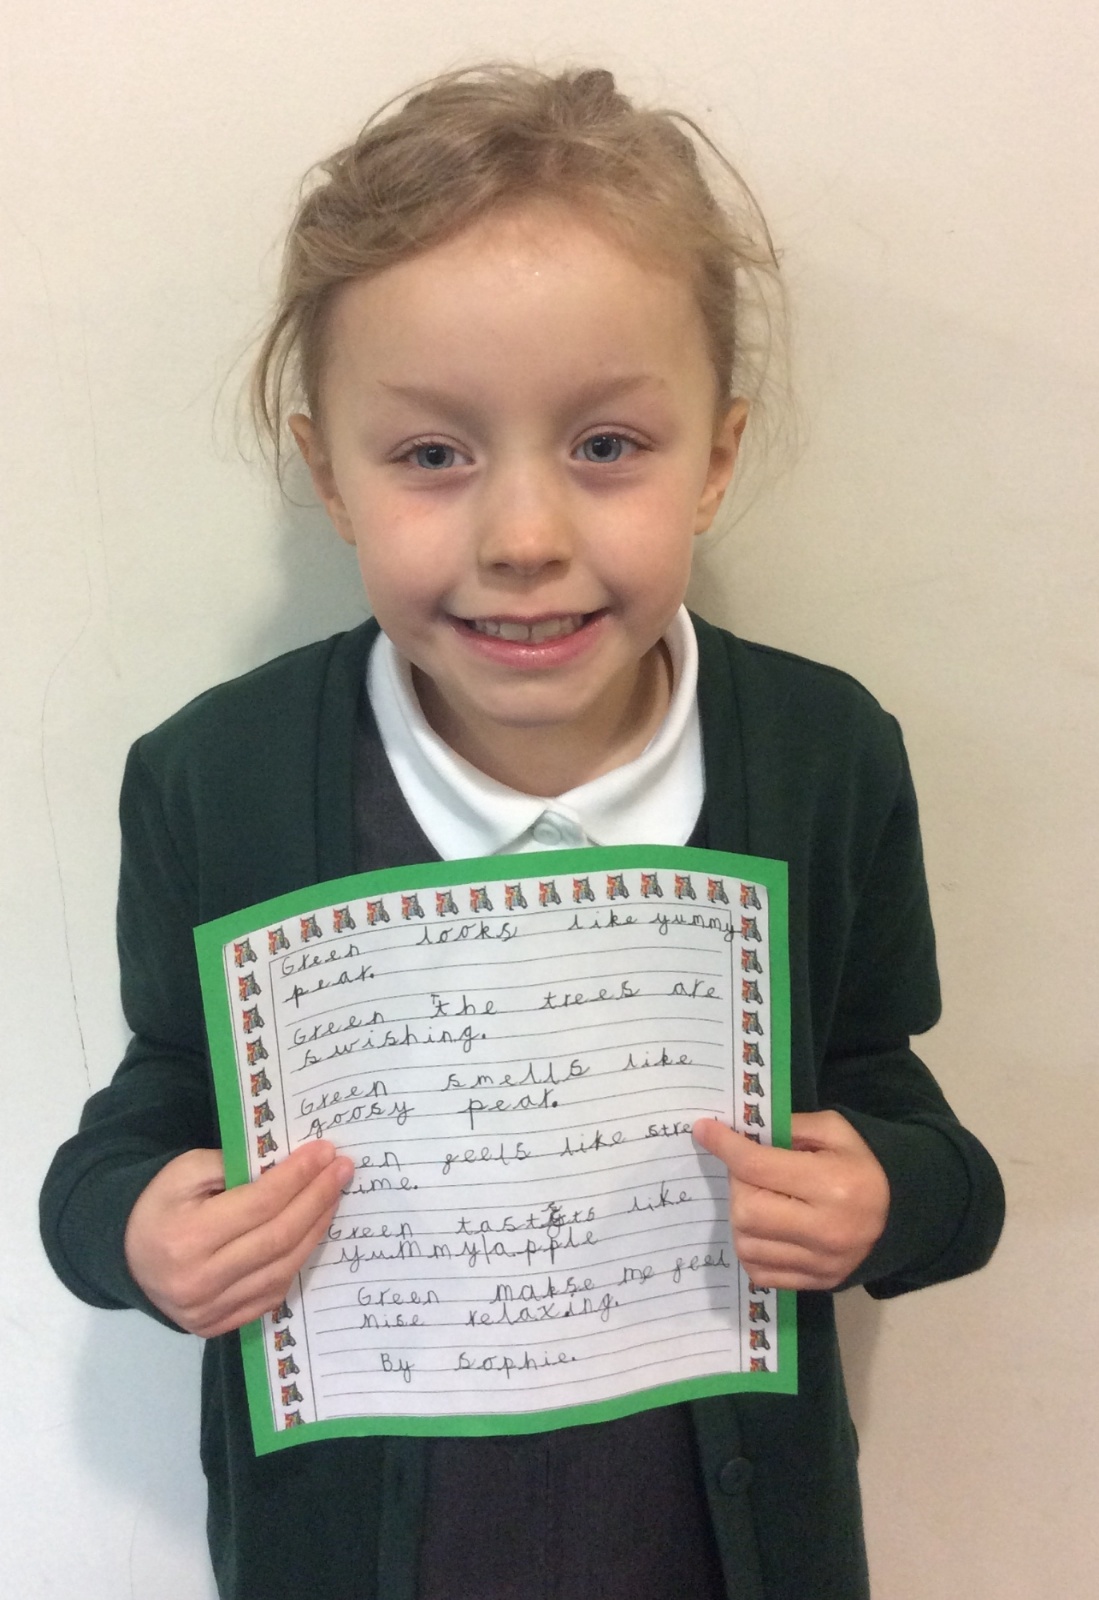 Green looks like yummy
pear.
Green the trees are
swishing.
Green smells like
goosy pear.
feels like
Green like
yummy apple
Green makse me feel
nise relaxing.
By Sophie.